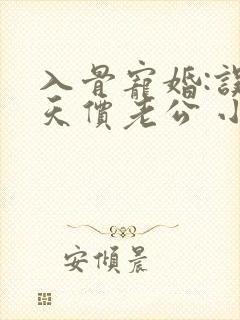 入骨寵婚:誤
天價老公 小
安傾晨